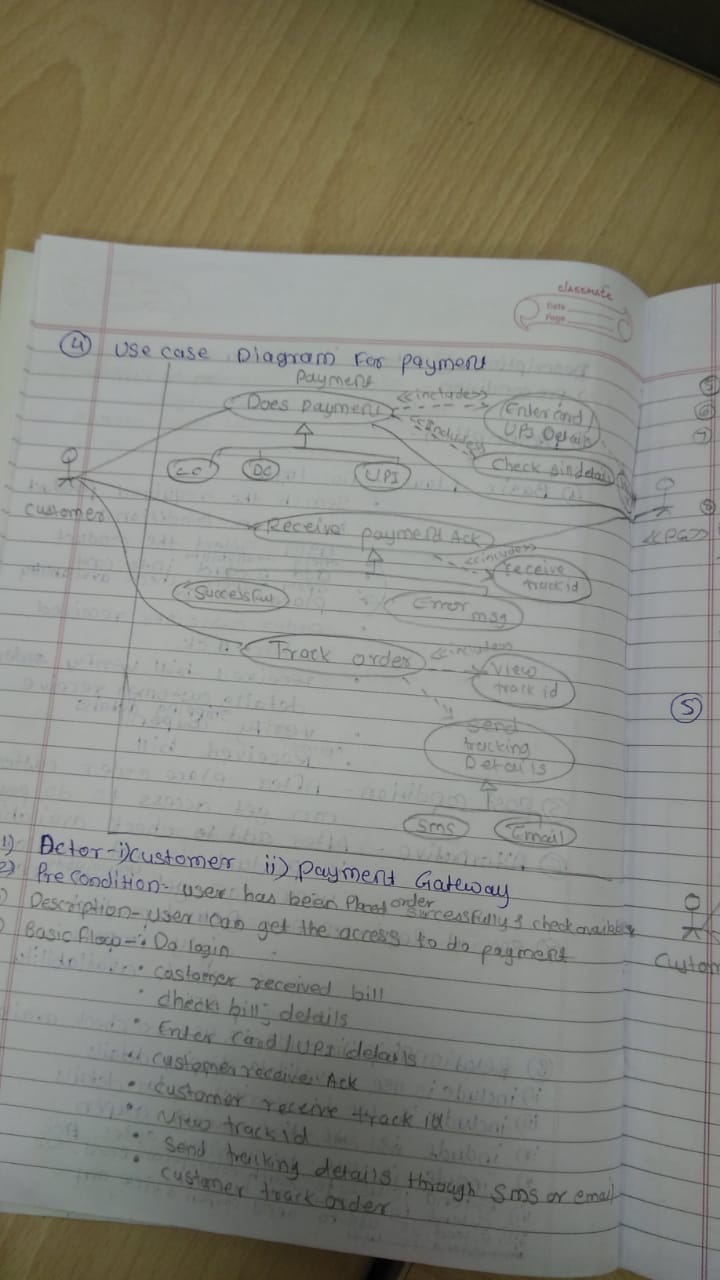 classmate
Date
Page
4 Use case Diagram For payment
Payment
Does payment
<<includes>>
Enter card/
UPI Details
<<includes>>
Check bill details
CC
DC
UPI
Customer
Receive payment Ack
<<includes>>
receive
track id
<<PG>>
Successful
Error
msg
Track order
<<includes>>
View
track id
Send
tracking
Details
Sms
Email
5
Custom
1) Actor- i) customer ii) Payment Gateway
2) Pre condition- user has been Placed order successfully & check
) Description- user can get the access to do payment
) Basic flow-• Do login
• customer received bill
• check bill details
• Enter card/UPI details
• customer receive Ack
• customer receive track id
• view track id
• send tracking details through sms or email
• customer track order